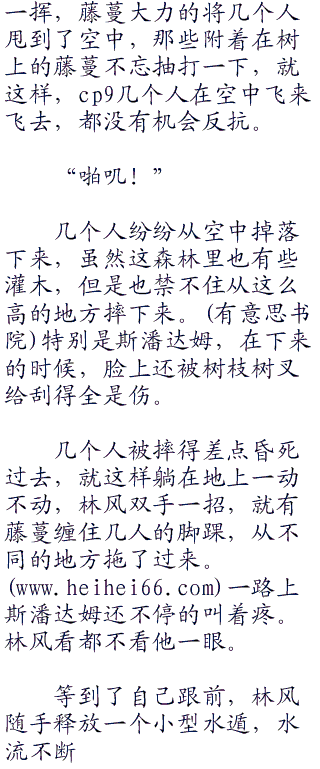 一挥，藤蔓大力的将几个人
甩到了空中，那些附着在树
上的藤蔓不忘抽打一下，就
这样，cp9几个人在空中飞来
飞去，都没有机会反抗。
“啪叽！”
几个人纷纷从空中掉落
下来，虽然这森林里也有些
灌木，但是也禁不住从这么
高的地方摔下来。(有意思书
院)特别是斯潘达姆，在下来
的时候，脸上还被树枝树叉
给刮得全是伤。
几个人被摔得差点昏死
过去，就这样躺在地上一动
不动，林风双手一招，就有
藤蔓缠住几人的脚踝，从不
同的地方拖了过来。
(www.heihei66.com)一路上
斯潘达姆还不停的叫着疼。
林风看都不看他一眼。
等到了自己跟前，林风
随手释放一个小型水遁，水
流不断